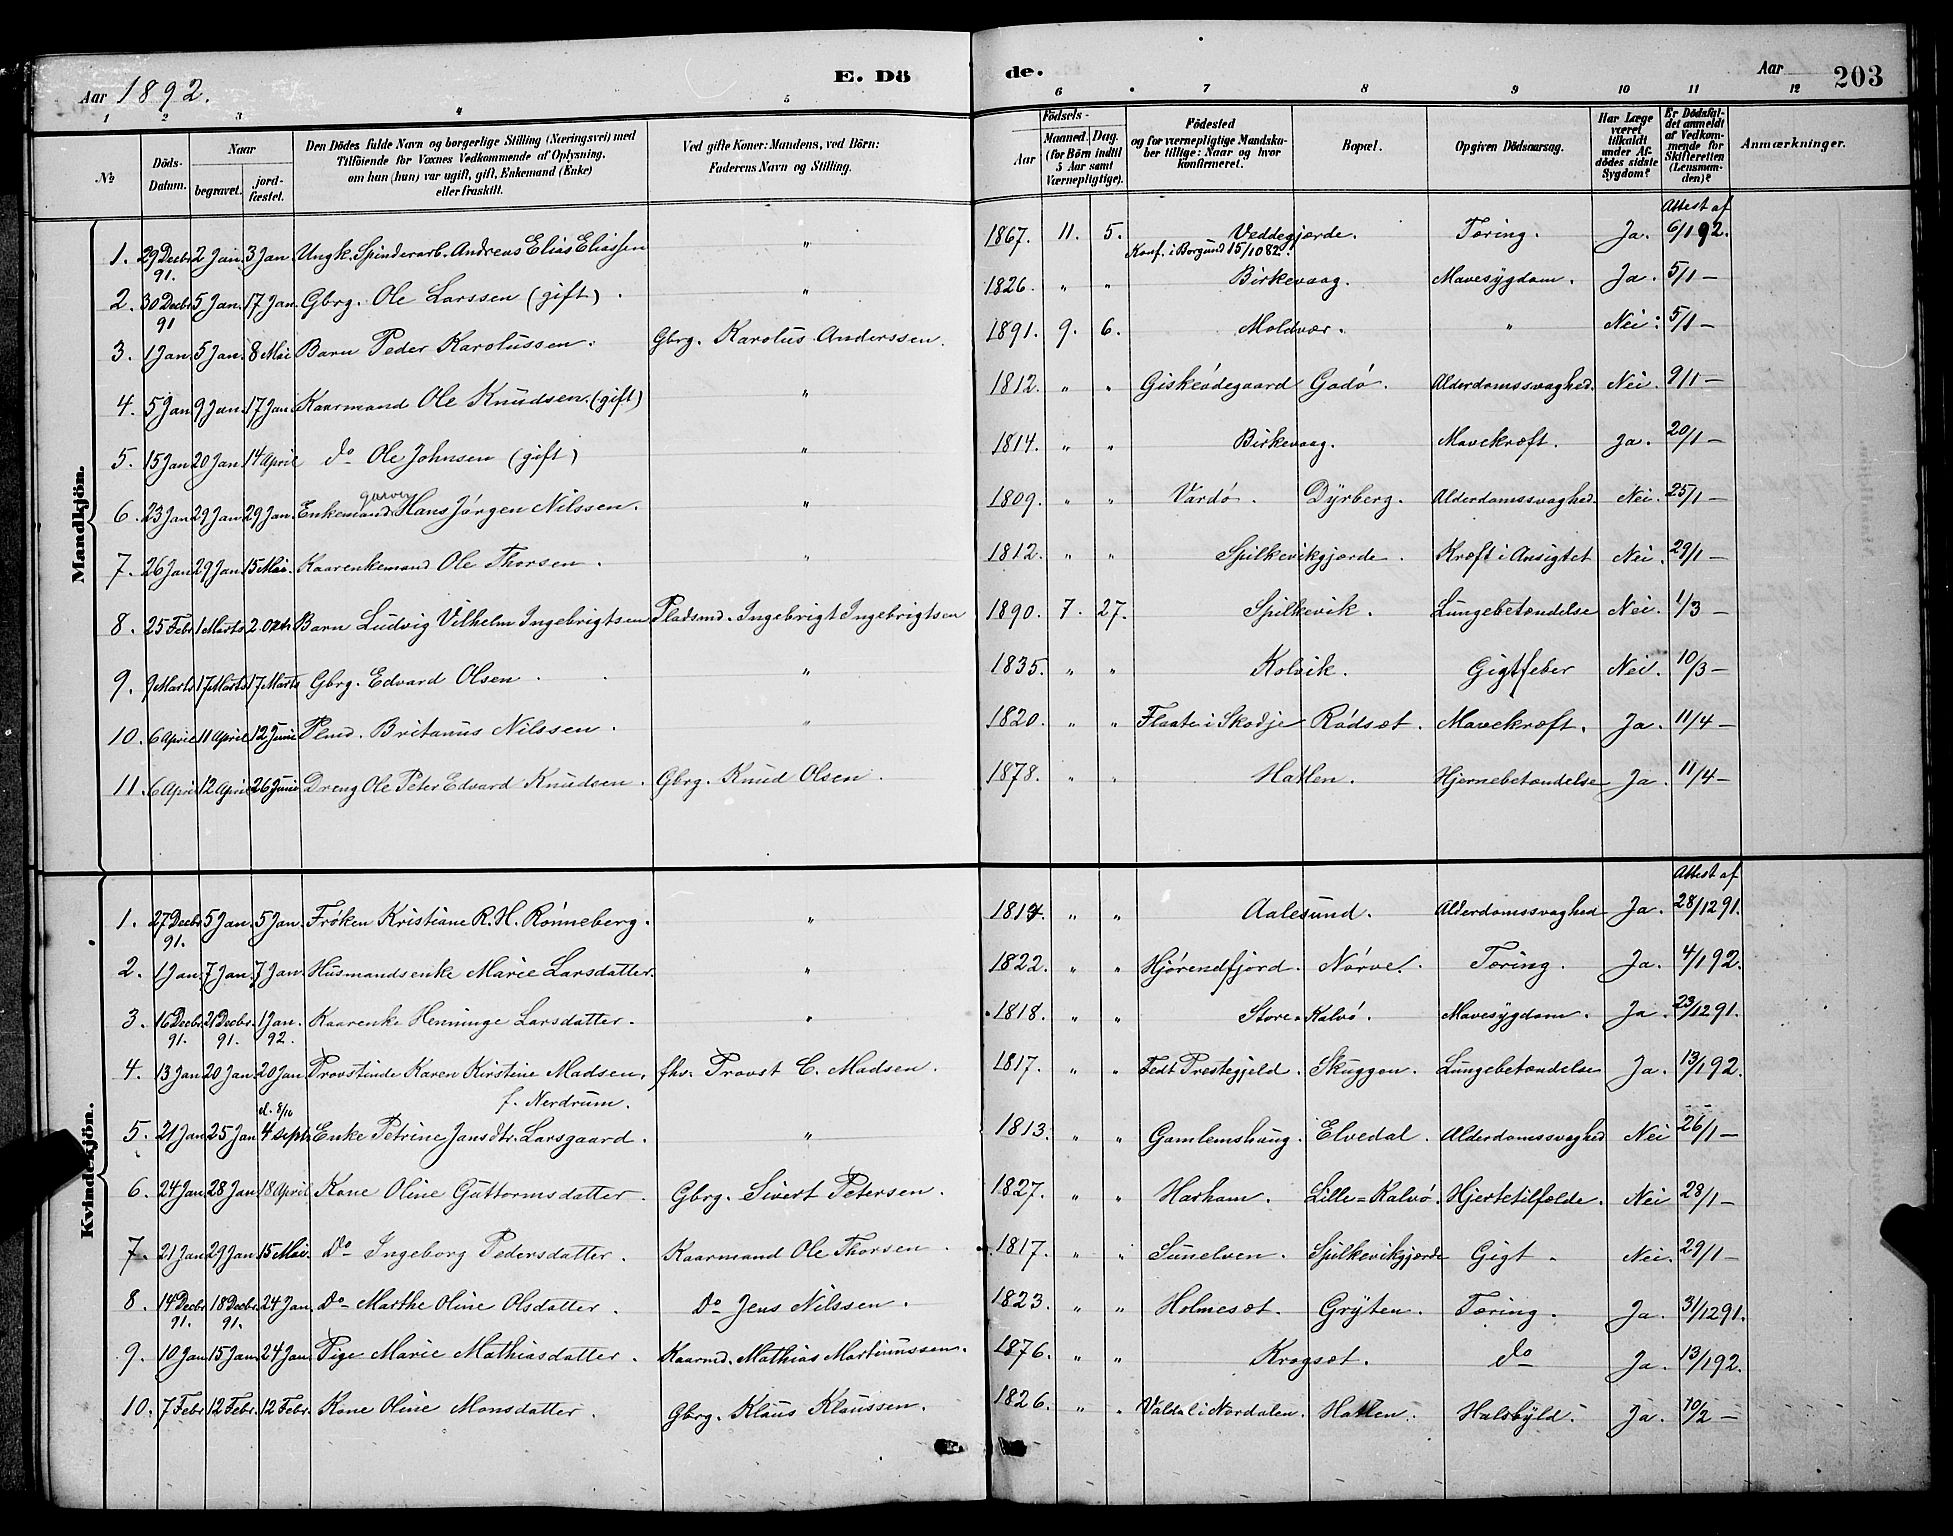 Aar 1892. E. Dö de. Aar 203
1 2 3 4 5 6 7 8 9 10 11 12
No Döds-Datum. Naar begravet. jord-fæstet. Den Dödes fulde Navn og borgerlige Stilling (Næringsvei) med Tilföiende for Voxnes Vedkommende af Oplysning, om han (hun) var ugift, gift, Enkemand (Enke) eller fraskilt. Ved gifte Koner: Mandens, ved Börn: Faderens Navn og Stilling. Födsels- Aar Maaned. Dag. (for Börn indtil 5 Aar samt Værnepligtige). Födested og for værnepligtige Mandskaber tillige: Naar og hvor konfirmeret. Bopæl. Opgiven Dödsaarsag. Har Læge været tilkaldt under Afdödes sidste Sygdom? Er Dödsfaldet anmeldt af Vedkommende for Skifteretten (Lensmanden)? Anmærkninger.
Mandkjön.
Attest af
1. 29 Decbr 91. 2 Jan. 3 Jan. Ungk. Spinderarb. Andreas Elias Eliassen " 1867. 11. 5. Veddegjerde. Konf. i Borgund 15/10 82. Tæring. Ja. 6/1 92.
2. 30 Decbr 91 5 Jan. 17 Jan. Gbrg. Ole Larssen (gift). " 1826. " " Birkevaag. Mavesygdom. Ja. 5/1 —
3. 1 Jan 5 Jan. 8 Mai Barn Peder Karolussen. Gbrg. Karolus Anderssen. 1891. 9. 6. Moldvær. " Nei. 5/1 —
4. 5 Jan 9 Jan. 17 Jan. Kaarmand Ole Knudsen. (gift) " 1812. " " Giskeødegaard Godø. Alderdomssvaghed. Nei. 9/1 —
5. 15 Jan 20 Jan. 14 April do Ole Johnsen (gift) " 1814. " " Birkevaag. Mavekræft. Ja. 20/1 —
6. 23 Jan 29 Jan. 29 Jan. Enkemand garver Hans Jørgen Nilssen. " 1809. " " Vardø. Dyrberg. Alderdomssvaghed. Nei. 25/1 —
7. 26 Jan 29 Jan. 15 Mai. Kaarenkemand Ole Thorsen. " 1812. " " Spilkevikgjerde. Kræft i Ansigtet Nei. 29/1 —
8. 25 Febr. 1 Marts 2. Oktr. Barn Ludvig Vilhelm Ingebrigtsen Pladsmd. Ingebrigt Ingebrigtsen 1890. 7. 27. Spilkevik. Lungebetændelse Nei. 1/3 —
9. 9 Marts 17 Marts 17 Marts Gbrg. Edvard Olsen " 1835. " " Kolvik. Gigtfeber Nei. 10/3 —
10. 6 April 11 April 12 Juni Plmd. Britanus Nilssen. " 1820. " " Flaate i Skodje Rødset. Mavekræft. Ja. 11/4 —
11. 6 April 12 April 26 Juni Dreng Ole Peter Edvard Knudsen. Gbrg. Knud Olsen. 1878. " " Hatlen. Hjernebetændelse Ja. 11/4 —
Kvindekjön.
Attest af
1. 27 Decbr 91. 5 Jan. 5 Jan. Frøken Kristiane R. H. Rønneberg. " " " Aalesund. Alderdomssvaghed Ja. 28/12 91.
2. 1 Jan. 7 Jan. 7 Jan. Husmandsenke Marie Larsdatter. " 1822. " " Hjørendfjord. Nørve. Tæring. Ja. 4/1 92.
3. 16 Decbr. 91. 21 Decbr. 91. 1 Jan. 92. Kaarenke Henninge Larsdatter. " 1818. " " Store-Kalvø. Mavesygdom. Ja. 23/12 91.
4. 13 Jan 20 Jan. 20 Jan Provstinde Karen Kirstine Madsen, f. Nerdrum. fhv. Provst C. Madsen. 1817. " " Fedt Prestegjeld. Skuggen. Lungebetændelse Ja. 13/1 92.
5. 21 Jan 25 Jan d. 8/10 4 Septr. Enke Petrine Jansdtr. Larsgaard. " 1813. " " Gamlemshaug. Elvedal. Alderdomssvaghed Nei 26/1 —
6. 24 Jan 28 Jan 18 April Kone Oline Guttormsdatter. Gbrg. Sivert Petersen. 1827. " " Harham. Lille-Kalvø. Hjertetilfælde. Nei 28/1 —
7. 21 Jan 29 Jan 15 Mai. Do Ingeborg Pedersdatter. Kaarmand Ole Thorsen 1817. " " Sunelven. Spilkevikgjerde Gigt. Nei. 29/1 —
8. 14 Decbr 91. 18 Decbr. 91. 24 Jan. Do Marthe Oline Olsdatter. Do Jens Nilssen. 1823. " " Holmeset. Gryten. Tæring. Ja. 31/12 91.
9. 10 Jan 15 Jan. 24 Jan. Pige Marie Mathiasdatter. Kaarmd. Mathias Martinussen. 1876. " " Krogset. do Ja. 13/1 92.
10. 7 Febr 12 Febr. 12 Febr. Kone Oline Monsdatter. Gbrg. Klaus Klaussen. 1826. " " Valdal i Nordalen. Hatlen. Halsbyld. Ja. 10/2 —